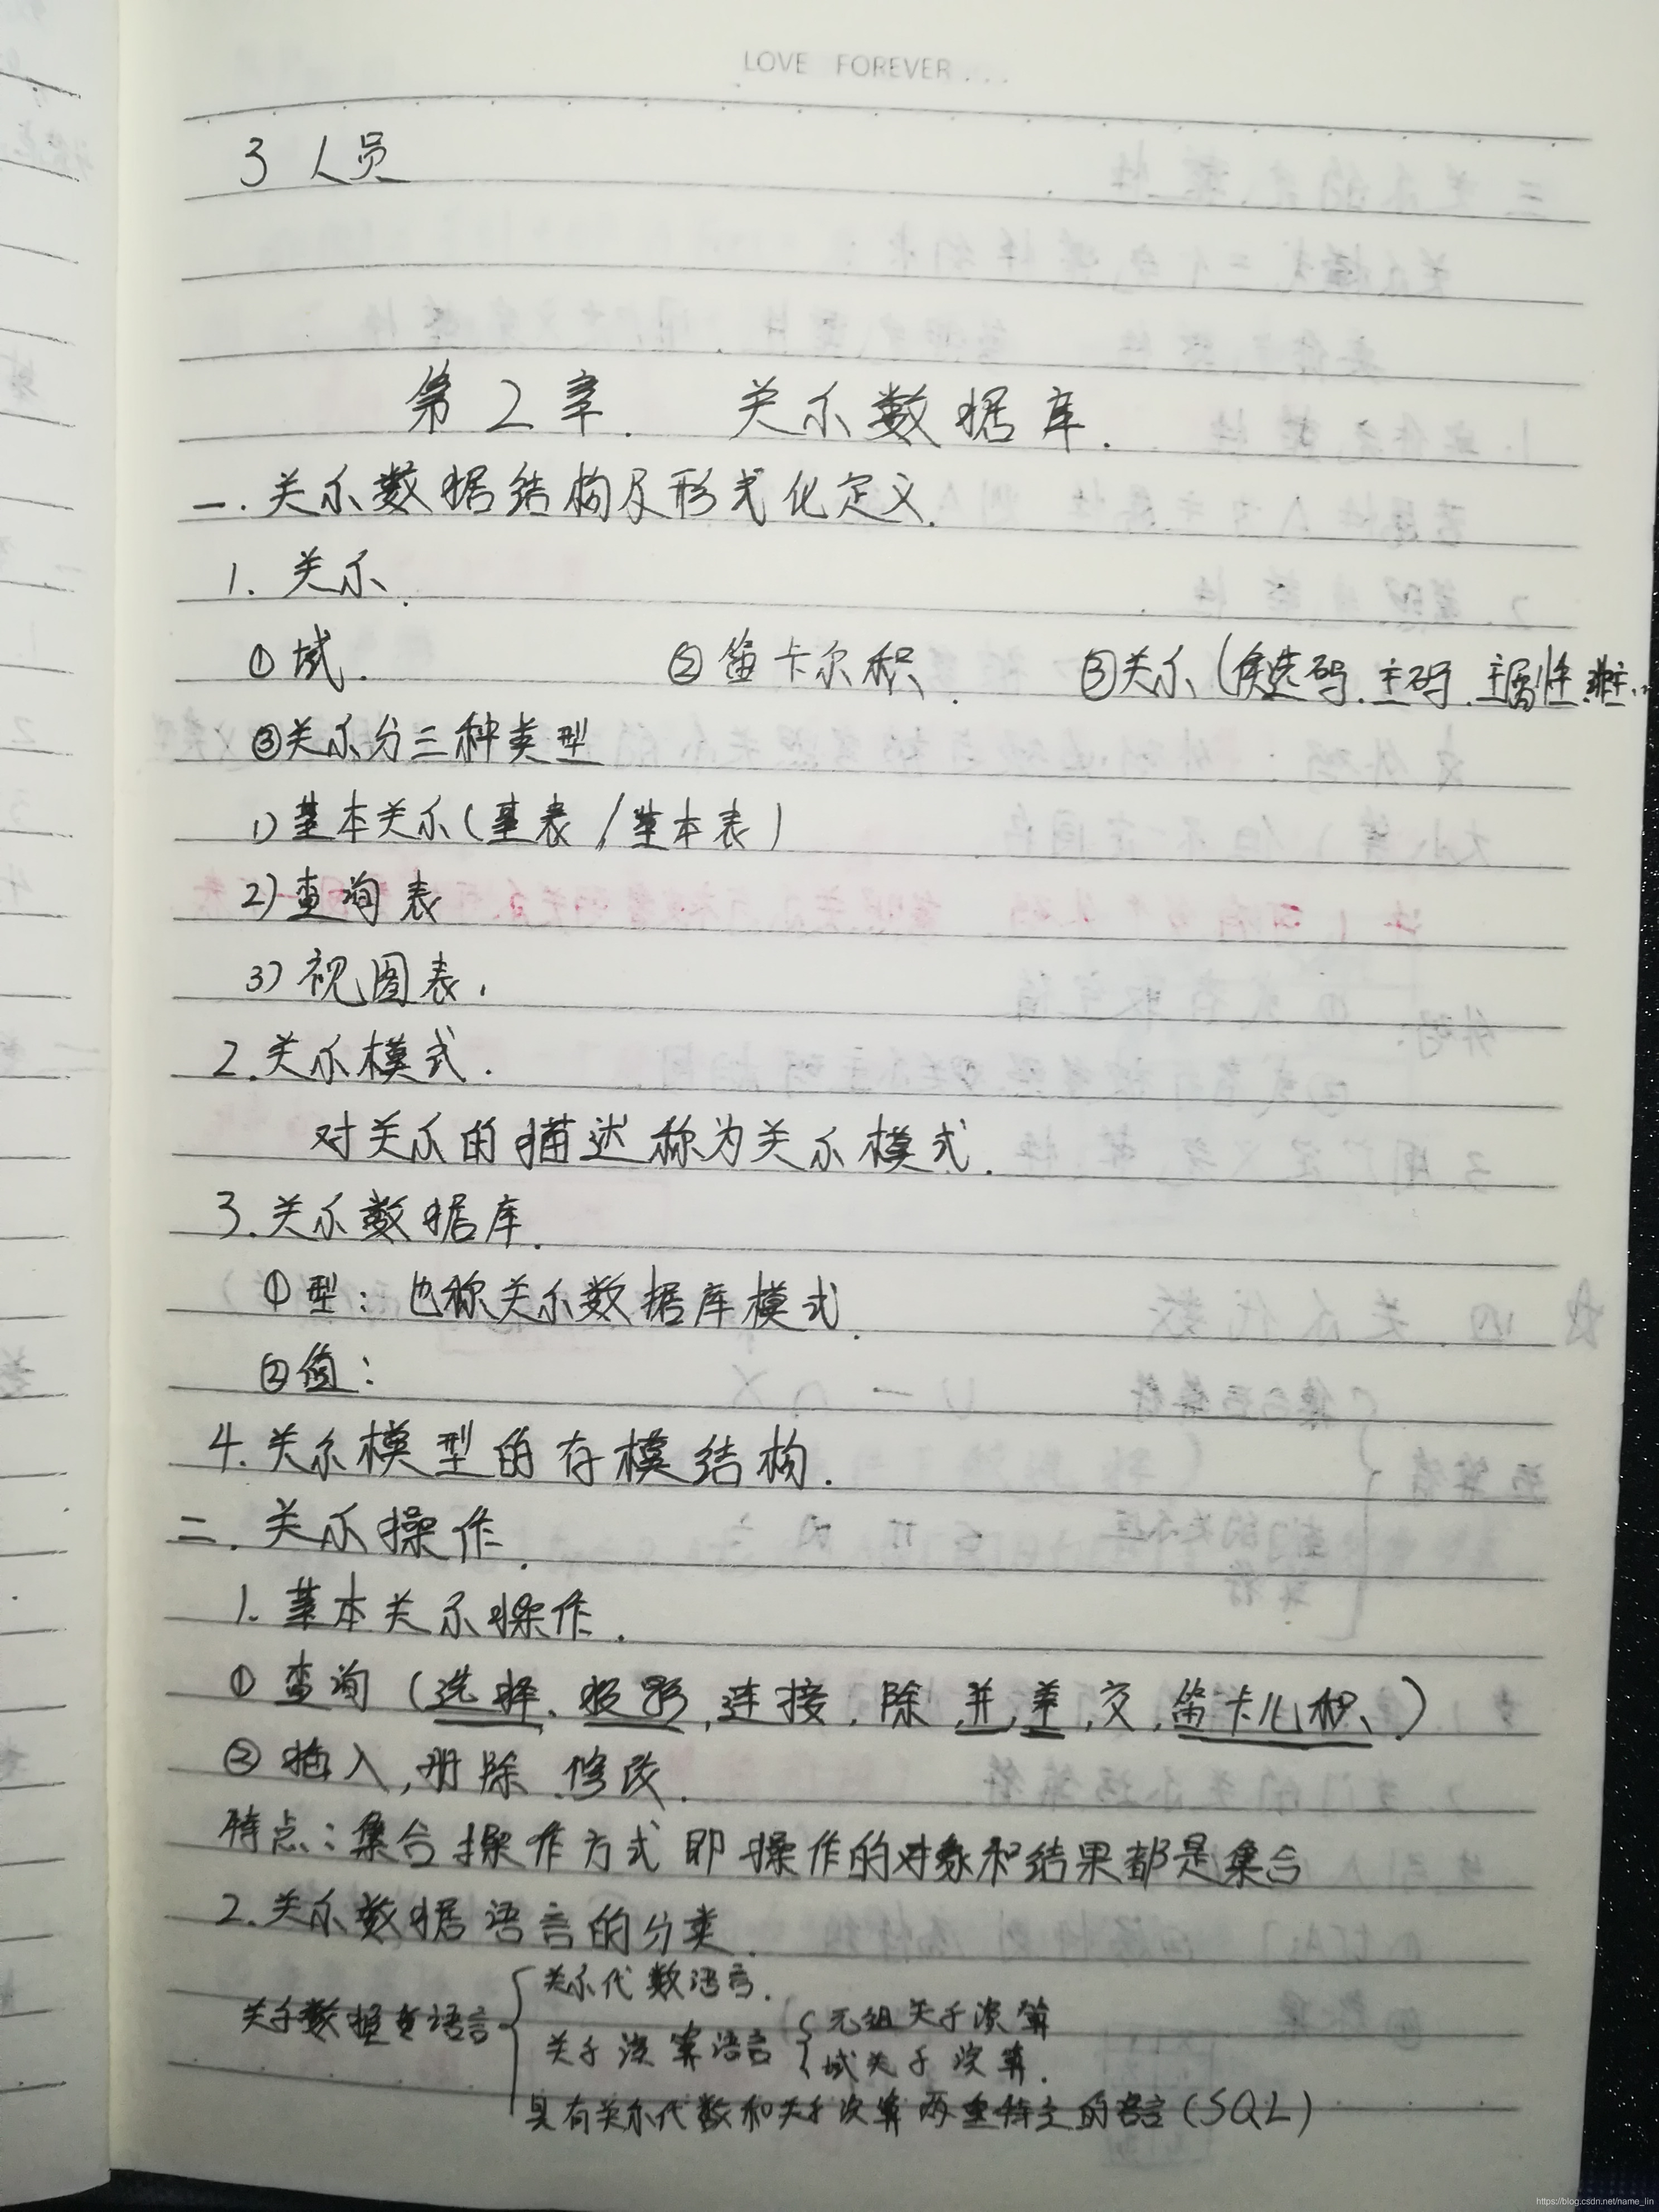 LOVE FOREVER...
3 人员
第2章. 关系数据库.
一.关系数据结构及形式化定义.
1. 关系.
①域. ②笛卡尔积. ③关系(候选码.主码.主属性.
③关系分三种类型
1)基本关系(基表/基本表)
2)查询表
3)视图表.
2.关系模式.
对关系的描述称为关系模式.
3.关系数据库.
①型:也称关系数据库模式.
②值:
4.关系模型的存模结构.
二.关系操作.
1.基本关系操作.
①查询(选择.投影,连接,除,并,差,交,笛卡儿积、)
②插入,册除.修改.
特点:集合操作方式 即操作的对象和结果都是集合
2.关系数据语言的分类.
关于数据语言
关系代数语言.
关于演算语言
元组关于演算
域关于演算.
具有关系代数和关于演算两重特点的语言(SQL)
https://blog.csdn.net/name_lin